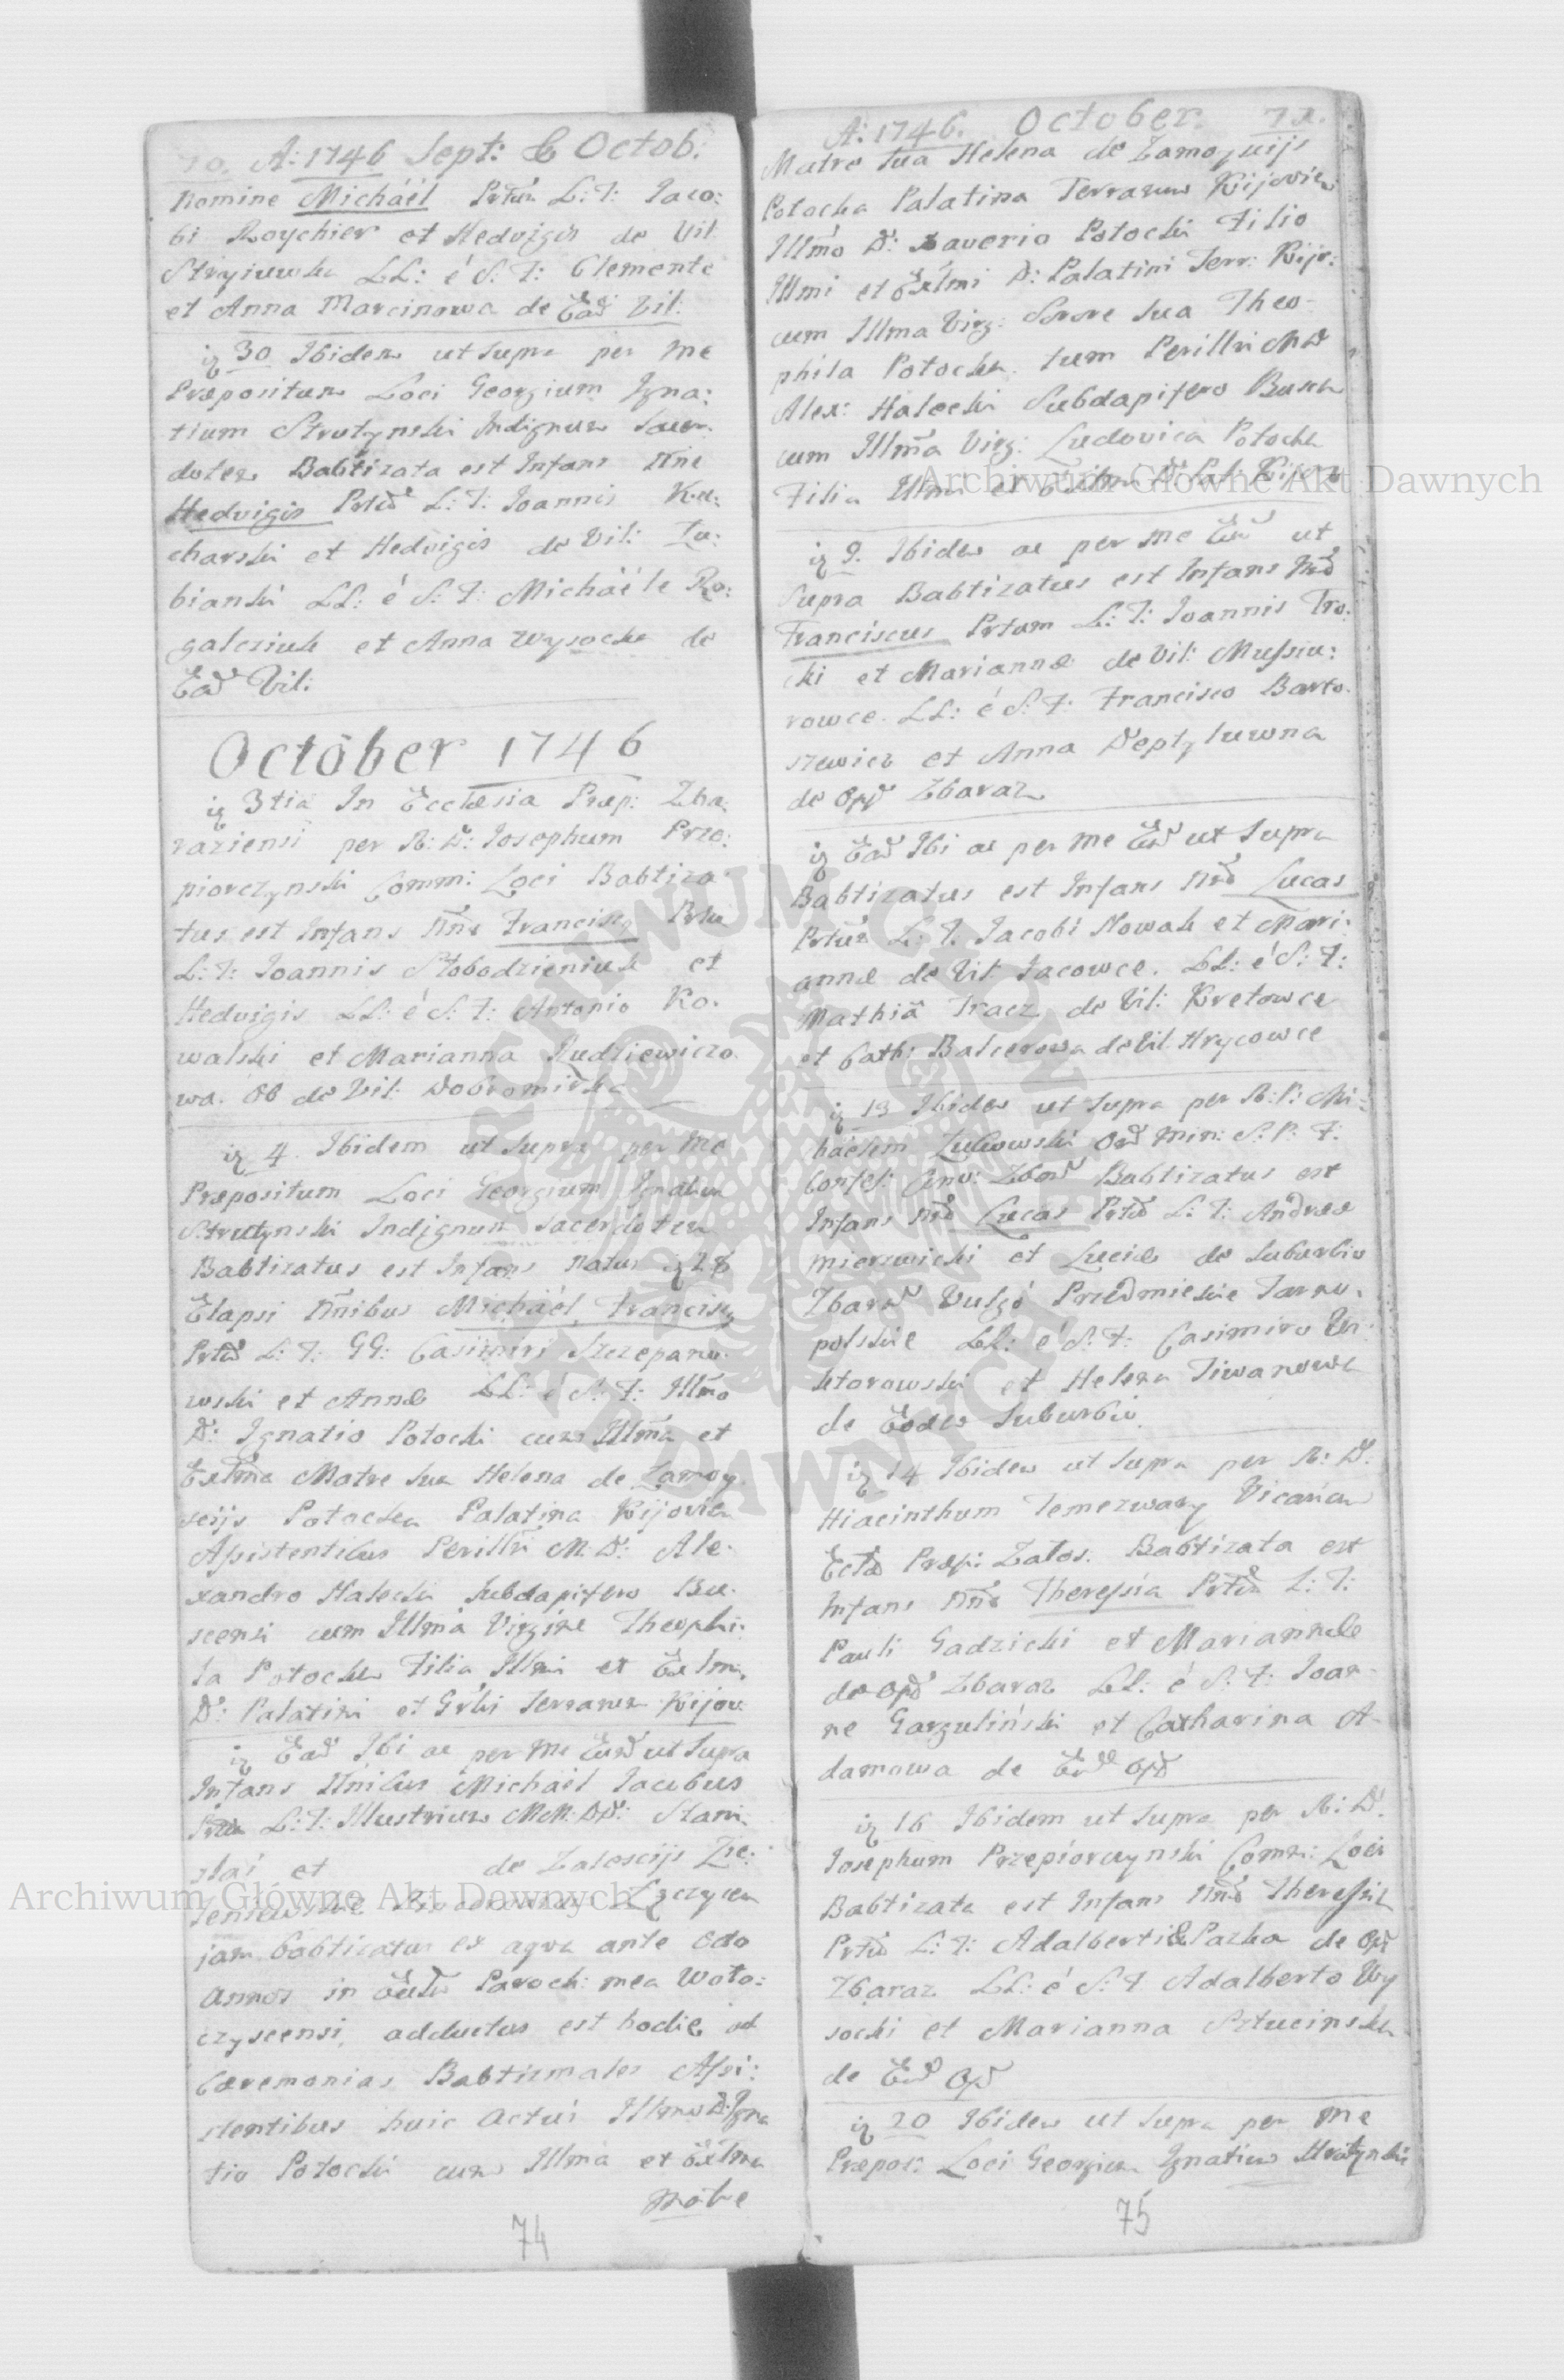 70. A: 1746 Sept: & Octob:
Nomine Michaël Prtūm L: T: Jaco:
bi Roychier et Hedvigis de Vil.
LL: é S: F: Clemente
et Anna Marcinowa de Ead Vil:
30 Ibidem ut Supra per me
Præpositum Loci Georgium Igna:
tium Strutynski Indignum Sacer:
dotem Babtizata est Infans Nne
Hedvigis L: T: Joannis Ku:
charski et Hedvigis de Vil: Lu:
bianki LL: é S: F: Michaële Ro:
galcziuk et Anna Wysocka de
Ead Vil:
October 1746
3tia In Ecclesia Præp: Zba
raziensi per R: D: Josephum Prze:
piorczynski Comm: Loci Babtiza
tus est Infans Nne Francisc9
L: T: Joannis Slobodzieniuk et
Hedvigis LL: é S: F: Antonio Ko.
walski et Marianna Rudziewiczo
wa de Vil: Dobromirka
4 Ibidem ut Supra per me
Præpositum Loci Georgium Ignatium
Strutynski Indignum Sacerdotem
Babtizatus est Infans Natus
Elapsi Nnibus Michaël, Francisc9
L: T: GG: Casimiri Szczepano
wski et Annæ LL: é S: F: Illmo
D: Ignatio Potocki cum Illma et
Exlma Matre Sua Helena de Zamoy
scijs Potocka Palatina Kijovien
Assistentibus Perillri M: D: Ale
xandro Halecki Subdapifero Bu
scensi cum Illma Virgine Theophi
la Potocka Filia Illmi et Exlmi
D: Palatini et Grlis Terrarum Kijov:
Ead Ibi ac per me Eund ut Supra
Infans Nnibus Michaël Jacobus
L: T: Illustrium MM: DD: Stani
slai et de Zalescijs Zie:
jam babtizatus ex aqva ante octo
annos in Paroch: mea Woto:
czyscensi, adductus est hodie ad
Cæremonias Babtismales Assi:
stentibus huic actui Illmo D: Igna
tio Potocki cum Illma et Exlma
Matre
74
A: 1746. October. 71.
Matre Sua Helena de Zamoyscijs
Potocka Palatina Terrarum Kijovien
Illmo D: Xaverio Potocki Filio
Illmi et Exlmi D: Palatini Terr: Kijo:
cum Illma Virg: Sorore Sua Theo
phila Potocka. tum Perillri M D
Alex: Halecki Subdapifero Buscen
cum Illma Virg: Ludovica Potocka
Filia Illmi et Exlmi D: Pal: Kijov
9. Ibidem ac per me Eund ut
Supra Babtizatus est Infans Nne
Franciscus L: T: Joannis Tro:
cki et Mariannæ de Vil: Mussiu:
rowce. LL: é S: F: Francisco Barto
szewicz et Anna Deptyluwna
de Opp Zbaraz
Ead Ibi ac per me Eund ut Supra
Babtizatus est Infans Nne Lucas
L: T: Jacobi Nowak et Mari:
annæ de Vil: Jacowce. LL: é S: F:
Mathia Tracz de Vil: Kretowce
et Cath: Balcerowa de Vil: Hrycowce
13 Ibidem ut Supra per R: P: Mi:
haelem Zulkowski Ord Min: S: P: F:
Babtizatus est
Infans Nne Lucas L: T: Andreæ
Mierzwicki et Luciæ de Suburbio
Zbaraz Vulgo Przedmiescie Tarno.
polskie LL: é S: F: Casimiro
et Helena Tiwanowa
de Eodem Suburbio.
14 Ibidem ut Supra per R: D.
Hiacinthum Temerwary Vicarium
Præp: Zalos: Babtizata est
Infans Nne Theressia L: T:
Pauli Gadzicki et Mariannæ
de Opp Zbaraz LL: é S: F: Joan
ne Garzulinski et Catharina A
damowa de Eod Opp
16 Ibidem ut Supra per R: D.
Josephum Przepiorczynski Comm: Loci
Babtizata est Infans Nne Theressia
L: T: Adalberti & Pazka de Opp
Zbaraz LL: é S: F Adalberto Wy
socki et Marianna Sztucinska
de Eod Opp
20 Ibidem ut Supra per me
Præpos: Loci Georgium Ignatium Strutynski
75
Archiwum Główne Akt Dawnych
Archiwum Główne Akt Dawnych
ARCHIWUM GŁÓWNE AKT DAWNYCH